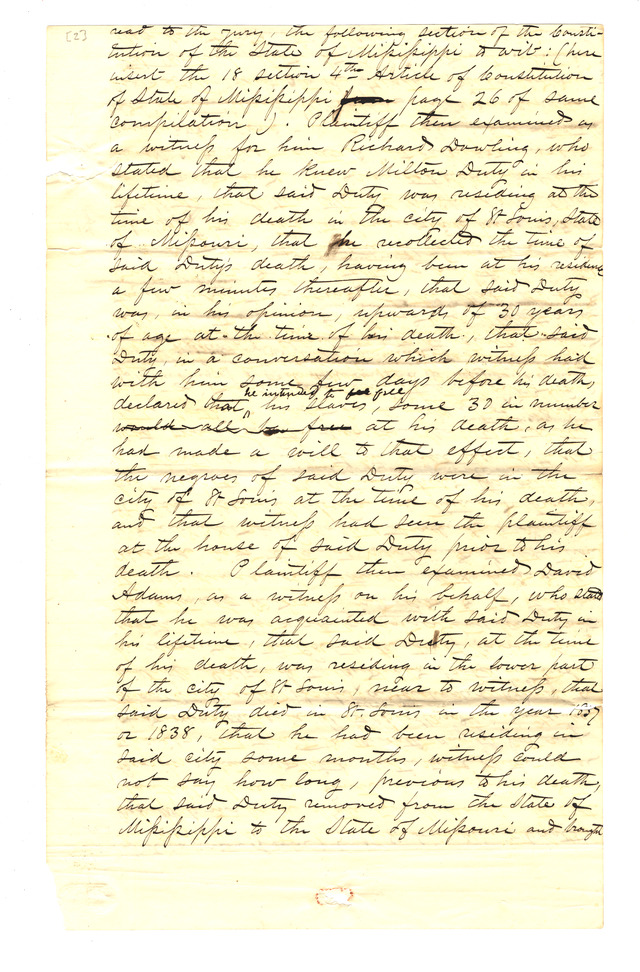 [2]
read to the jury, the following section of the Consti-
tution of the State of Mississippi to wit: (here
insert the 18 section 4th Article of Constitution
of State of Mississippi page 26 of same
compilation). Plaintiff then examined as
a witness for him Richard Dowling, who
stated that he knew Milton Duty in his
lifetime, that said Duty was residing at the
time of his death in the city of St Louis, State
of Missouri, that he recollected the time of
said Duty's death, having been at his residence
a few minutes thereafter, that said Duty
was, in his opinion, upwards of 30 years
of age at the time of his death, that said
Duty, in a conversation which witness had
with him some few days before his death,
he intended to free
declared that his slaves, some 30 in number
would all be free at his death, as he
had made a will to that effect, that
the negroes of said Duty were in the
city of St Louis at the time of his death,
and that witness had seen the plaintiff
at the house of said Duty prior to his
death. Plaintiff then examined David
Adams, as a witness on his behalf, who stated
that he was acquainted with said Duty in
his lifetime, that said Duty, at the time
of his death, was residing in the lower part
of the city of St Louis, near to witness, that
said Duty died in St. Louis in the year 1837
or 1838, that he had been residing in
said city some months, witness could
not say how long, previous to his death,
that said Duty removed from the State of
Mississippi to the State of Missouri and brought